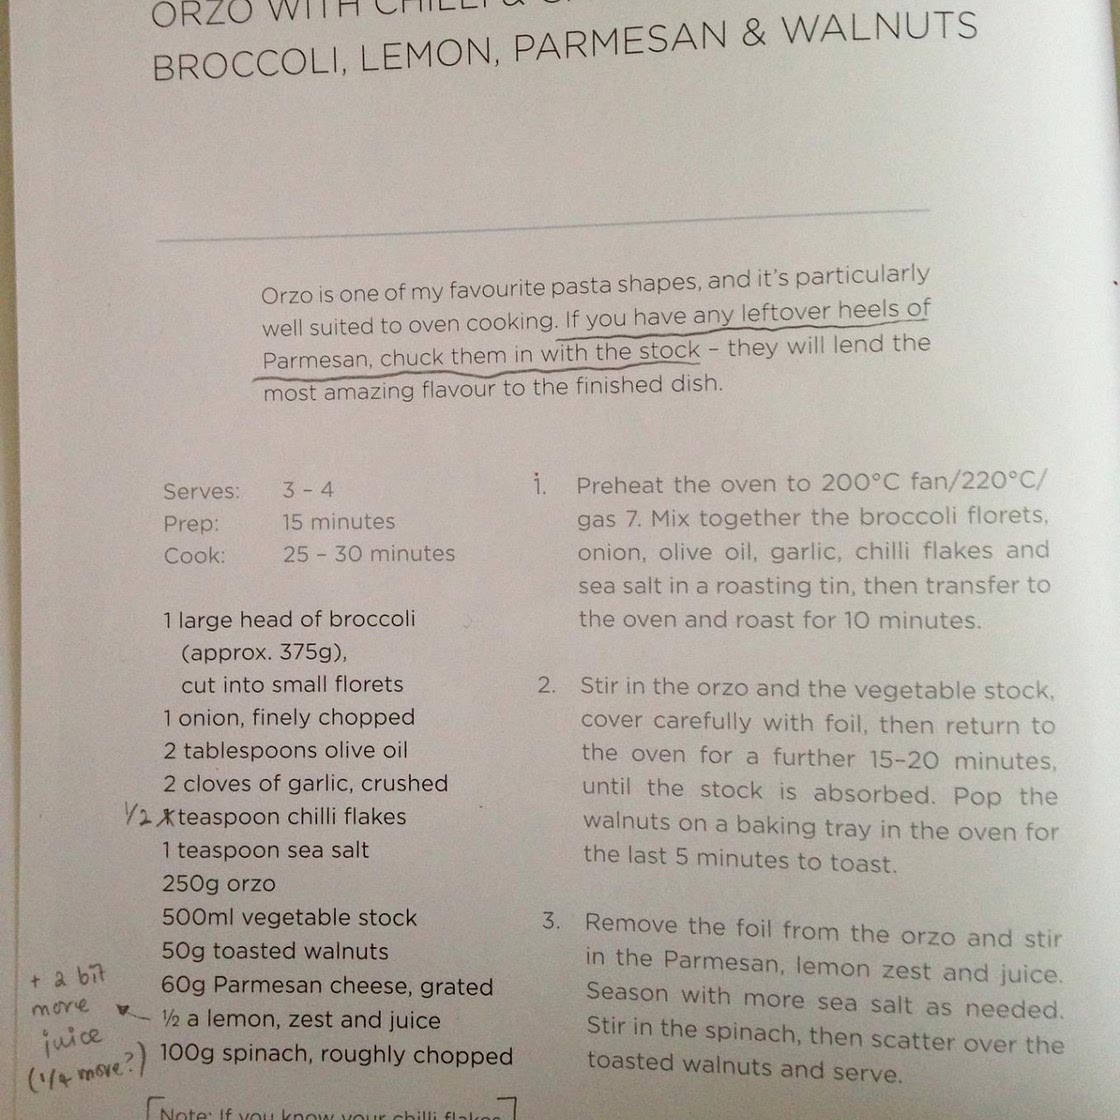 ORZO WITH CHILLI &
BROCCOLI, LEMON, PARMESAN & WALNUTS
Orzo is one of my favourite pasta shapes, and it's particularly
well suited to oven cooking. If you have any leftover heels of
Parmesan, chuck them in with the stock – they will lend the
most amazing flavour to the finished dish.
Serves: 3 – 4
Prep: 15 minutes
Cook: 25 – 30 minutes
1 large head of broccoli
(approx. 375g),
cut into small florets
1 onion, finely chopped
2 tablespoons olive oil
2 cloves of garlic, crushed
1/2 teaspoon chilli flakes
1 teaspoon sea salt
250g orzo
500ml vegetable stock
50g toasted walnuts
60g Parmesan cheese, grated
½ a lemon, zest and juice
100g spinach, roughly chopped
+ a bit
more
juice
(1/4 more?)
Note: If you know your chilli flakes
1. Preheat the oven to 200°C fan/220°C/
gas 7. Mix together the broccoli florets,
onion, olive oil, garlic, chilli flakes and
sea salt in a roasting tin, then transfer to
the oven and roast for 10 minutes.
2. Stir in the orzo and the vegetable stock,
cover carefully with foil, then return to
the oven for a further 15–20 minutes,
until the stock is absorbed. Pop the
walnuts on a baking tray in the oven for
the last 5 minutes to toast.
3. Remove the foil from the orzo and stir
in the Parmesan, lemon zest and juice.
Season with more sea salt as needed.
Stir in the spinach, then scatter over the
toasted walnuts and serve.